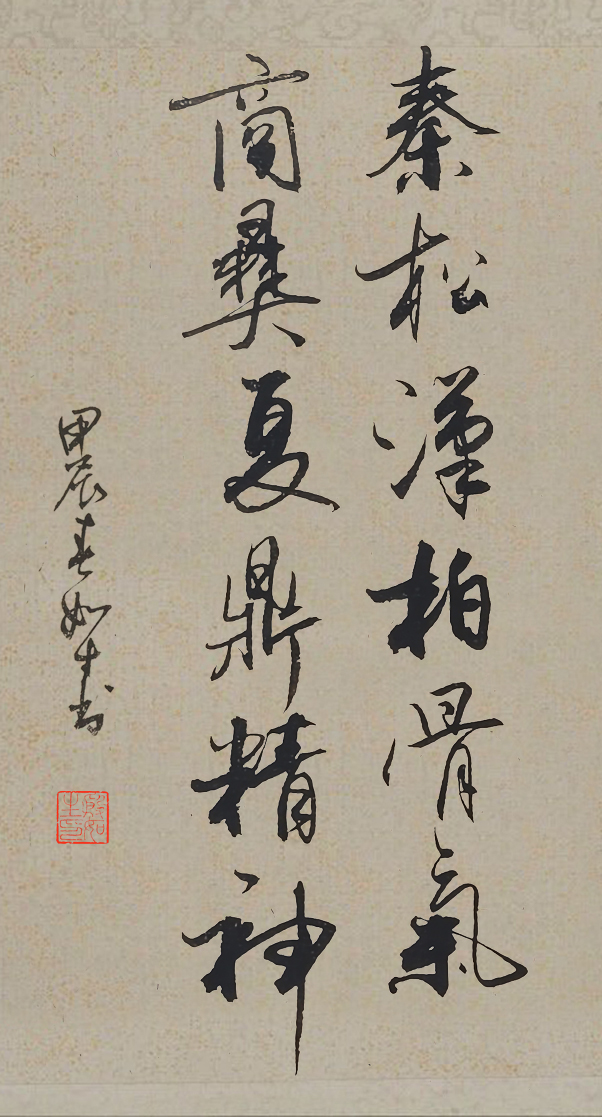 秦松漢柏骨氣
商彝夏鼎精神
甲辰春如生書